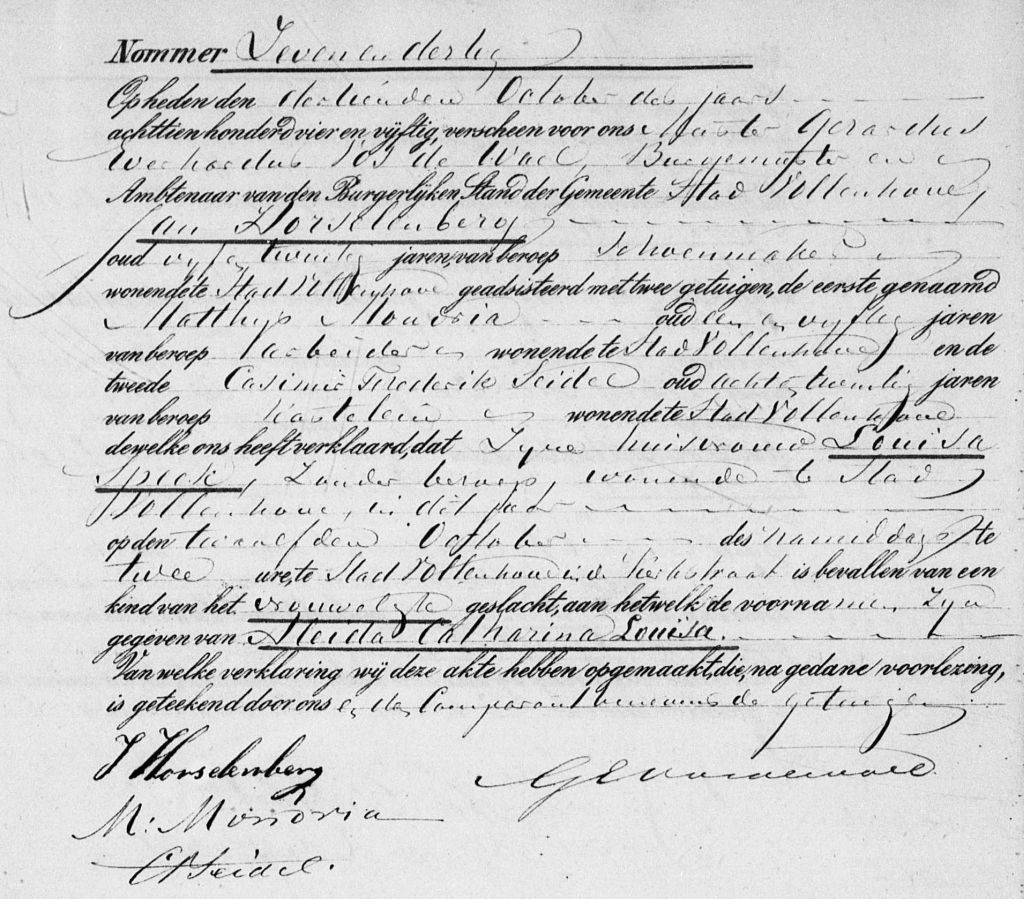 Nommer Zeven en dertig
Op heden den dertienden October des jaars
achttien honderd vier en vijftig, verscheen voor ons Meester Gerardus
Everhardus Vos de Wael, Burgemeester en
Ambtenaar van den Burgerlijken Stand der Gemeente Stad Vollenhove,
Jan Horselenberg
oud vyf en twintig jaren, van beroep Schoenmaker
wonende te Stad Vollenhove geadsisteerd met twee getuigen, de eerste genaamd
Matthys Mondria oud een en vyftig jaren
van beroep arbeider wonende te Stad Vollenhove en de
tweede Casimir Frederik Seidel oud acht en twintig jaren
van beroep Kastelein wonende te Stad Vollenhove
dewelke ons heeft verklaard, dat Zyne huisvrouw Louisa
Spiek, Zonder beroep, wonende te Stad
Vollenhove, in dit jaar
op den twaalfden October des namiddags te
twee ure, te Stad Vollenhove in de Kerkstraat is bevallen van een
kind van het vrouwelyk geslacht, aan hetwelk de voornamen Zyn
gegeven van Aleida Catharina Louisa.
Van welke verklaring wij deze akte hebben opgemaakt, die, na gedane voorlezing,
is geteekend door ons en den Comparant benevens de getuigen
J Horselenberg
GEVosdeWael
M: Mondria
CFSeidel.